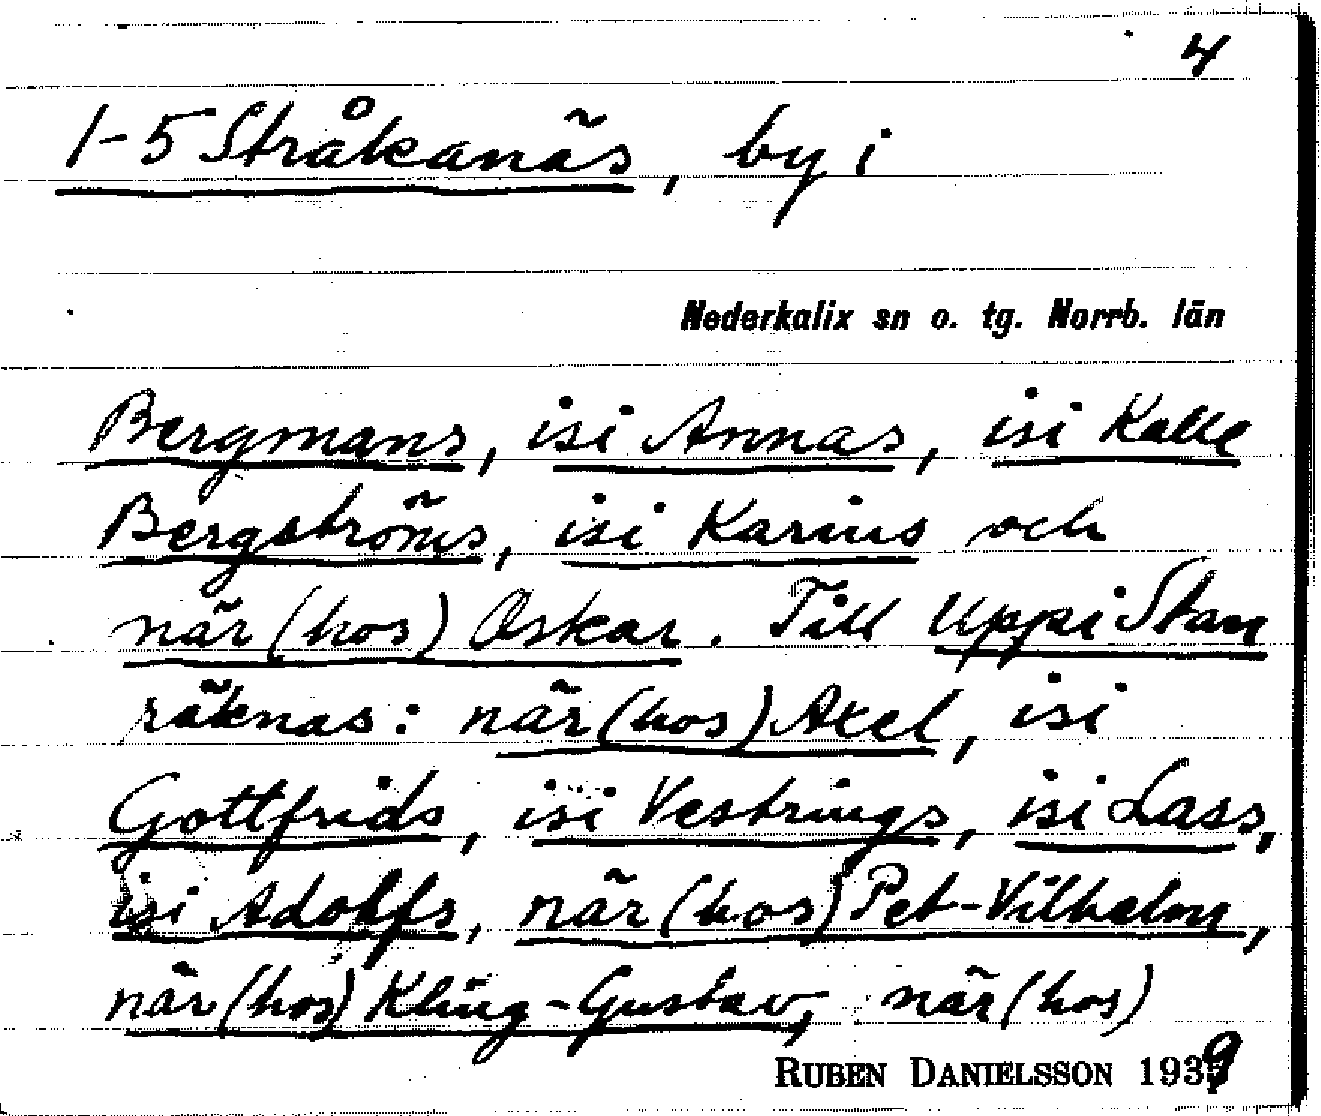 4
1-5 Stråkanäs, by i
Nederkalix sn o. tg. Norrb. län
Bergmans, isi Annas, isi Kalle
Bergströms, isi Karins och
när (hos) Oskar. Till Uppi Stan
räknas: när (hos) Axel, isi
Gottfrids, isi Vestrings, isi Lass,
isi Adolfs, när (hos) Pet-Vilhelm,
när (hos) Kling-Gustav, när (hos)
RUBEN DANIELSSON 1939